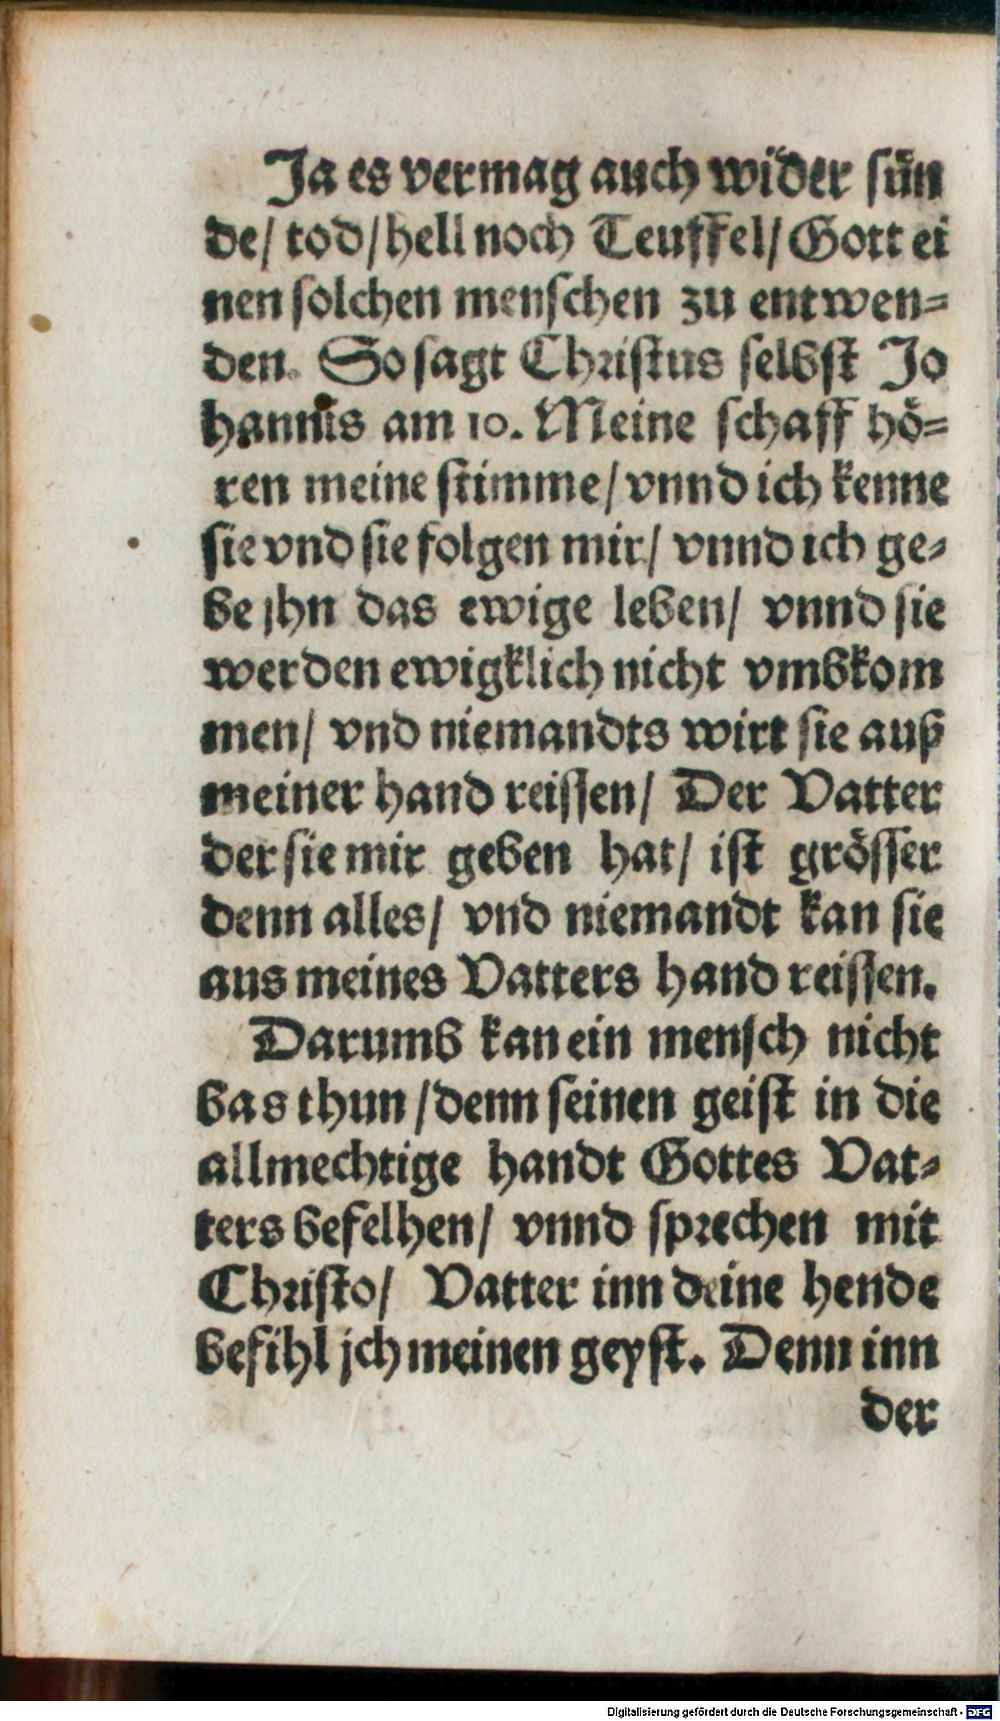 Ja es vermag auch wider sün
de/ tod/ hell noch Teuffel/ Gott ei
nen solchen menschen zu entwen-
den. So sagt Christus selbst Jo
hannis am 10. Meine schaff hö-
ren meine stimme/ vnnd ich kenne
sie vnd sie folgen mir/ vnnd ich ge-
be jhn das ewige leben/ vnnd sie
werden ewigklich nicht vmbkom
men/ vnd niemandts wirt sie auß
meiner hand reissen/ Der Vatter
der sie mir geben hat/ ist grösser
denn alles/ vnd niemandt kan sie
aus meines Vatters hand reissen.
Darumb kan ein mensch nicht
bas thun/ denn seinen geist in die
allmechtige handt Gottes Vat-
ters befelhen/ vnnd sprechen mit
Christo/ Vatter inn deine hende
befihl jch meinen geyst. Denn inn
der
Digitalisierung gefördert durch die Deutsche Forschungsgemeinschaft - DFG